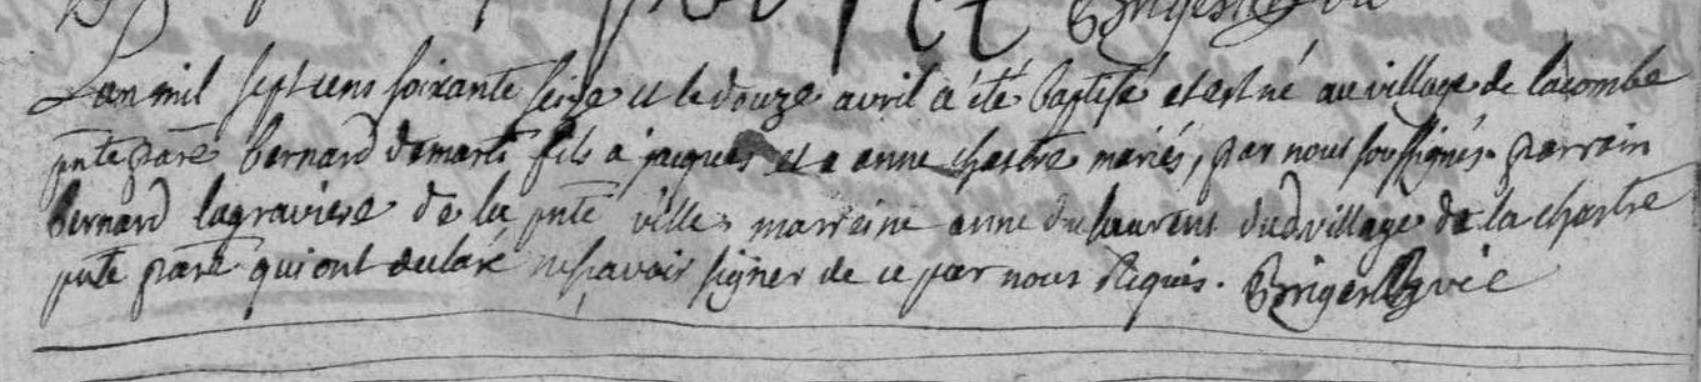 L'an mil sept cens soixante seize et le douze avril a été baptisé et est né au village de lacombe
pnte parsse bernard demartÿ fils a jacques et a anne chastre mariés, par nous soussignés. parrain
bernard lagraviere de la pnte ville, marreine anne dulaurens dud village de la chastre
pnte parsse qui ont declaré ne sçavoir signer de ce par nous requis.